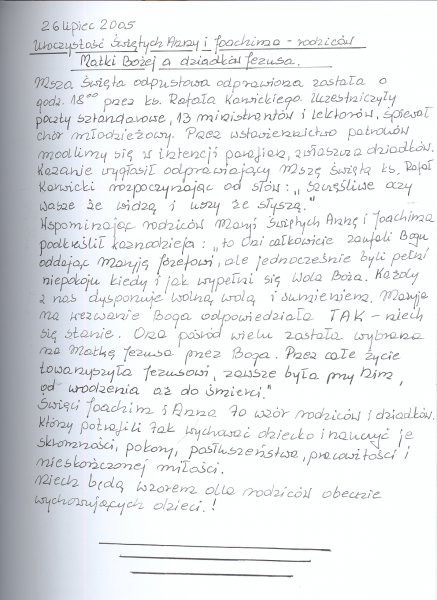 26 lipiec 2005
Uroczystość Świętych Anny i Joachima - rodziców
Matki Bożej a dziadków Jezusa.
Msza Święta odpustowa odprawiona została o
godz. 18⁰⁰ przez ks. Rafała Kanickiego. Uczestniczyły
poczty sztandarowe, 13 ministrantów i lektorów, śpiewał
chór młodzieżowy. Przez wstawiennictwo patronów
modlimy się w intencji parafian, zwłaszcza dziadków.
Kazanie wygłosił odprawiający Mszę Świętą ks. Rafał
Kanicki rozpoczynając od słów: „Szczęśliwe oczy
wasze że widzą i uszy że słyszą."
Wspominając rodziców Maryi Świętych Annę i Joachima
podkreślił kaznodzieja: „to oni całkowicie zaufali Bogu
oddając Maryję Józefowi, ale jednocześnie byli pełni
niepokoju kiedy i jak wypełni się Wola Boża. Każdy
z nas dysponuje wolną wolą i sumieniem. Maryja
na wezwanie Boga odpowiedziała TAK - niech
się stanie. Ona pośród wielu została wybrana
na Matkę Jezusa przez Boga. Przez całe życie
towarzyszyła Jezusowi, zawsze była przy Nim,
od narodzenia aż do śmierci."
Święci Joachim i Anna to wzór rodziców i dziadków,
którzy potrafili tak wychować dziecko i nauczyć je
skromności, pokory, posłuszeństwa, pracowitości i
nieskończonej miłości.
Niech będą wzorem dla rodziców obecnie
wychowujących dzieci.!